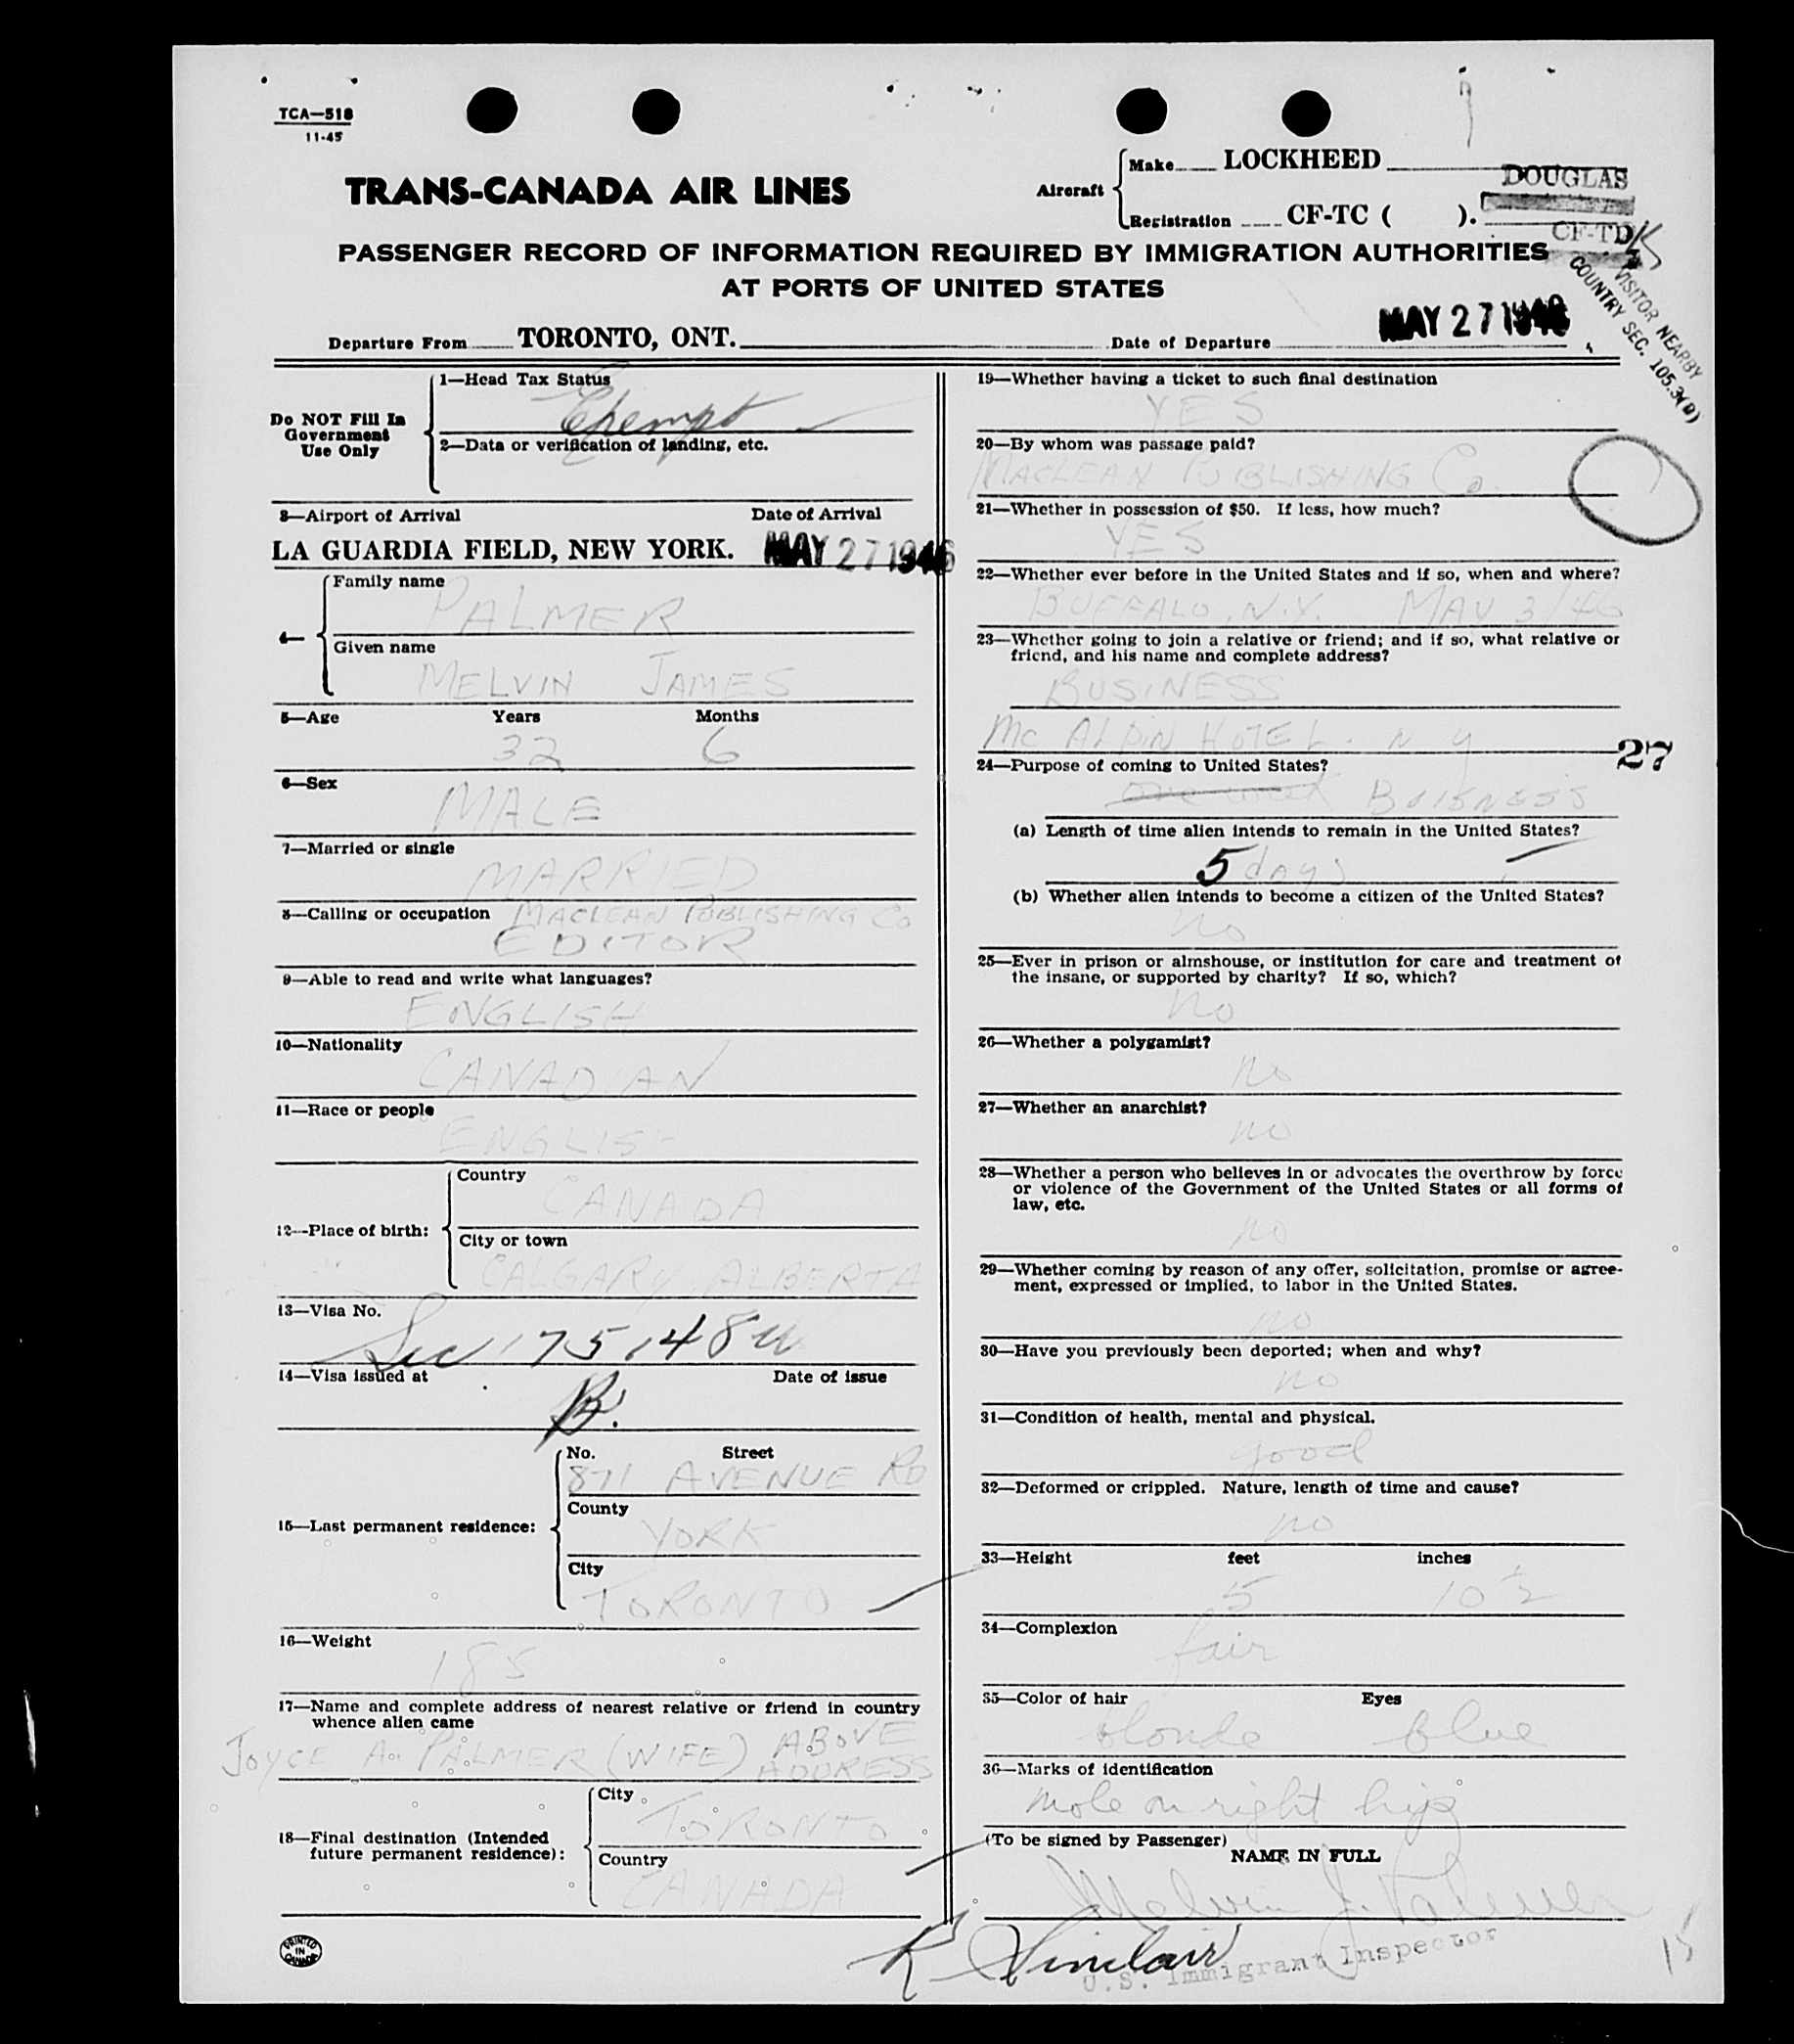 TCA—518
11-45
TRANS-CANADA AIR LINES
Aircraft
Make LOCKHEED
DOUGLAS
Registration CF-TC ( ).
CF-TD K
VISITOR NEARBY
COUNTRY SEC. 105.3(B)
PASSENGER RECORD OF INFORMATION REQUIRED BY IMMIGRATION AUTHORITIES
AT PORTS OF UNITED STATES
Departure From TORONTO, ONT. Date of Departure MAY 27 1946
Do NOT Fill In
Government
Use Only
1—Head Tax Status
Exempt
2—Data or verification of landing, etc.
3—Airport of Arrival Date of Arrival
LA GUARDIA FIELD, NEW YORK. MAY 27 1946
4—
Family name
PALMER
Given name
MELVIN JAMES
5—Age Years Months
32 6
6—Sex
MALE
7—Married or single
MARRIED
8—Calling or occupation MACLEAN PUBLISHING Co
EDITOR
9—Able to read and write what languages?
ENGLISH
10—Nationality
CANADIAN
11—Race or people
ENGLISH
12—Place of birth:
Country
CANADA
City or town
CALGARY, ALBERTA
13—Visa No.
Sec 175.148
14—Visa issued at Date of issue
B.
15—Last permanent residence:
No. Street
871 AVENUE RD
County
YORK
City
TORONTO
16—Weight
185
17—Name and complete address of nearest relative or friend in country
whence alien came
JOYCE A. PALMER (WIFE) ABOVE
ADDRESS
18—Final destination (Intended
future permanent residence):
City
TORONTO
Country
CANADA
PRINTED
IN
CANADA
19—Whether having a ticket to such final destination
YES
20—By whom was passage paid?
MACLEAN PUBLISHING Co.
21—Whether in possession of $50. If less, how much?
YES
22—Whether ever before in the United States and if so, when and where?
BUFFALO, N.Y. MAY 3/46
23—Whether going to join a relative or friend; and if so, what relative or
friend, and his name and complete address?
BUSINESS
Mc ALPIN HOTEL. N Y
27
24—Purpose of coming to United States?
one week BUISNESS
(a) Length of time alien intends to remain in the United States?
5 days
(b) Whether alien intends to become a citizen of the United States?
No
25—Ever in prison or almshouse, or institution for care and treatment of
the insane, or supported by charity? If so, which?
No
26—Whether a polygamist?
no
27—Whether an anarchist?
no
28—Whether a person who believes in or advocates the overthrow by force
or violence of the Government of the United States or all forms of
law, etc.
no
29—Whether coming by reason of any offer, solicitation, promise or agree-
ment, expressed or implied, to labor in the United States.
no
30—Have you previously been deported; when and why?
no
31—Condition of health, mental and physical.
good
32—Deformed or crippled. Nature, length of time and cause?
no
33—Height feet inches
5 10 ½
34—Complexion
fair
35—Color of hair Eyes
blonde blue
36—Marks of identification
mole on right hip
(To be signed by Passenger)
NAME IN FULL
Melvin J. Palmer
R Sinclair
U.S. Immigrant Inspector
15